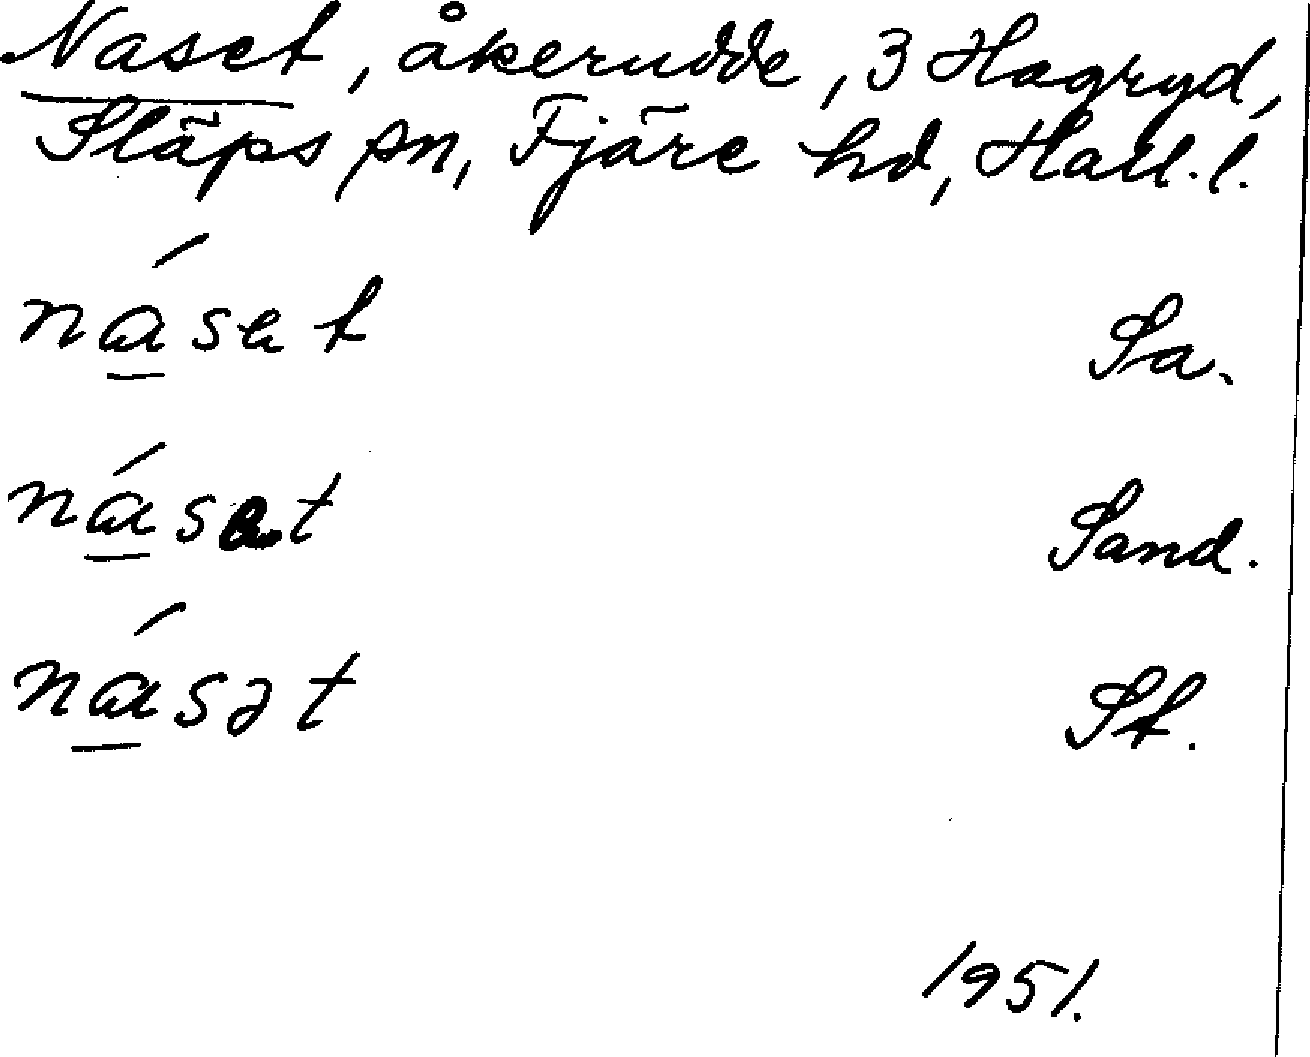 Naset, åkerudde, 3 Hagryd,
Släps sn, Fjäre hd, Hall. l.
náset Sa.
násət Sand.
násət St.
1951.